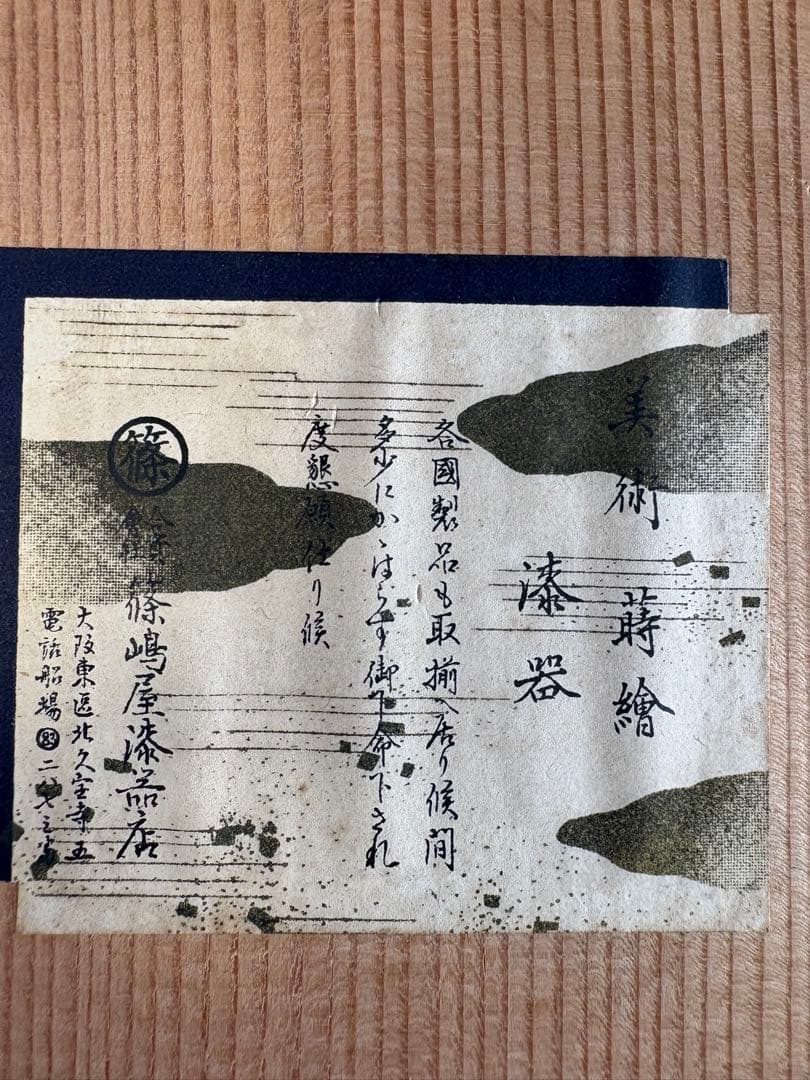 美術 蒔繪
漆器
各國製品も取揃へ居り候間
多少にかゝはらず御下命下され
度懇願仕り候
篠
合資會社 篠嶋屋漆器店
大阪東區北久宝寺五
電話船場